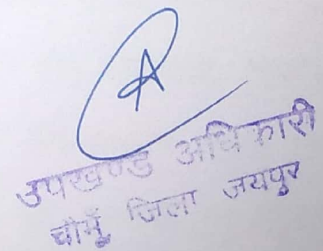 A
उपखण्ड अधिकारी
चौमूँ, जिला जयपुर